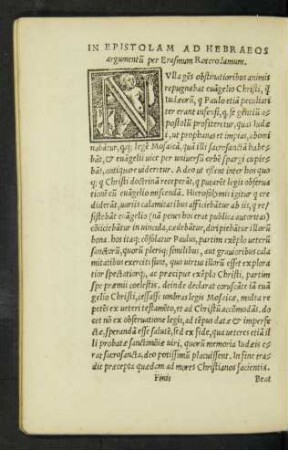 IN EPISTOLAM AD HEBRAEOS
argumentū per Erasmum Roterodamum.
NVlla gēs obstinatioribus animis
repugnabat euāgelio Christi, q̄
Iudæorū, q Paulo etiā peculiari
ter erant infensi, q, se gētiū a=
postolū profiteretur, quas Iudæ
i, ut prophanas et impias, abomi
nabātur, qq; legē Mosaicā, quā illi sacrosanctā habe=
bāt, & euāgelij uice per uniuersū orbē spargi cupie=
bāt, antiquare uideretur. Adeo ut essent inter hos quo
q; q Christi doctrinā receperāt, q putarēt legis obserua
tionē cū euāgelio miscendā. Hierosolymis igitur q cre
diderāt, uarijs calamitatibus afficiebātur ab ijs, q re=
sistebāt euāgelio (nā penes hos erat publica autoritas)
cōijciebātur in uincula, cædebātur, diripiebātur illorū
bona. hos itaq; cōsolatur Paulus, partim exēplo ueterū
sanctorū, quorū pleriq; similibus, aut grauioribus cala
mitatibus exerciti sunt, quo uirtus illorū esset explora
tior spectatiorq;, ac præcipue exēplo Christi, partim
spe præmij cœlestis. deinde declarat coruscāte iā euā
gelio Christi, cessasse umbras legis Mosaicæ, multa re
petēs ex ueteri testamēto, et ad Christū accōmodās. do
cet nō ex obseruatione legis, ad tēpus datæ & imperfe=
ctæ, sperandā esse salutē, sed ex fide, qua ueteres etiā il
li probatæ sanctimoniæ uiri, quorū memoria Iudæis e=
rat sacrosancta, deo potissimū placuissent. In fine tra=
dit præcepta quædam ad mores Christianos facientia.
Finis
Beat